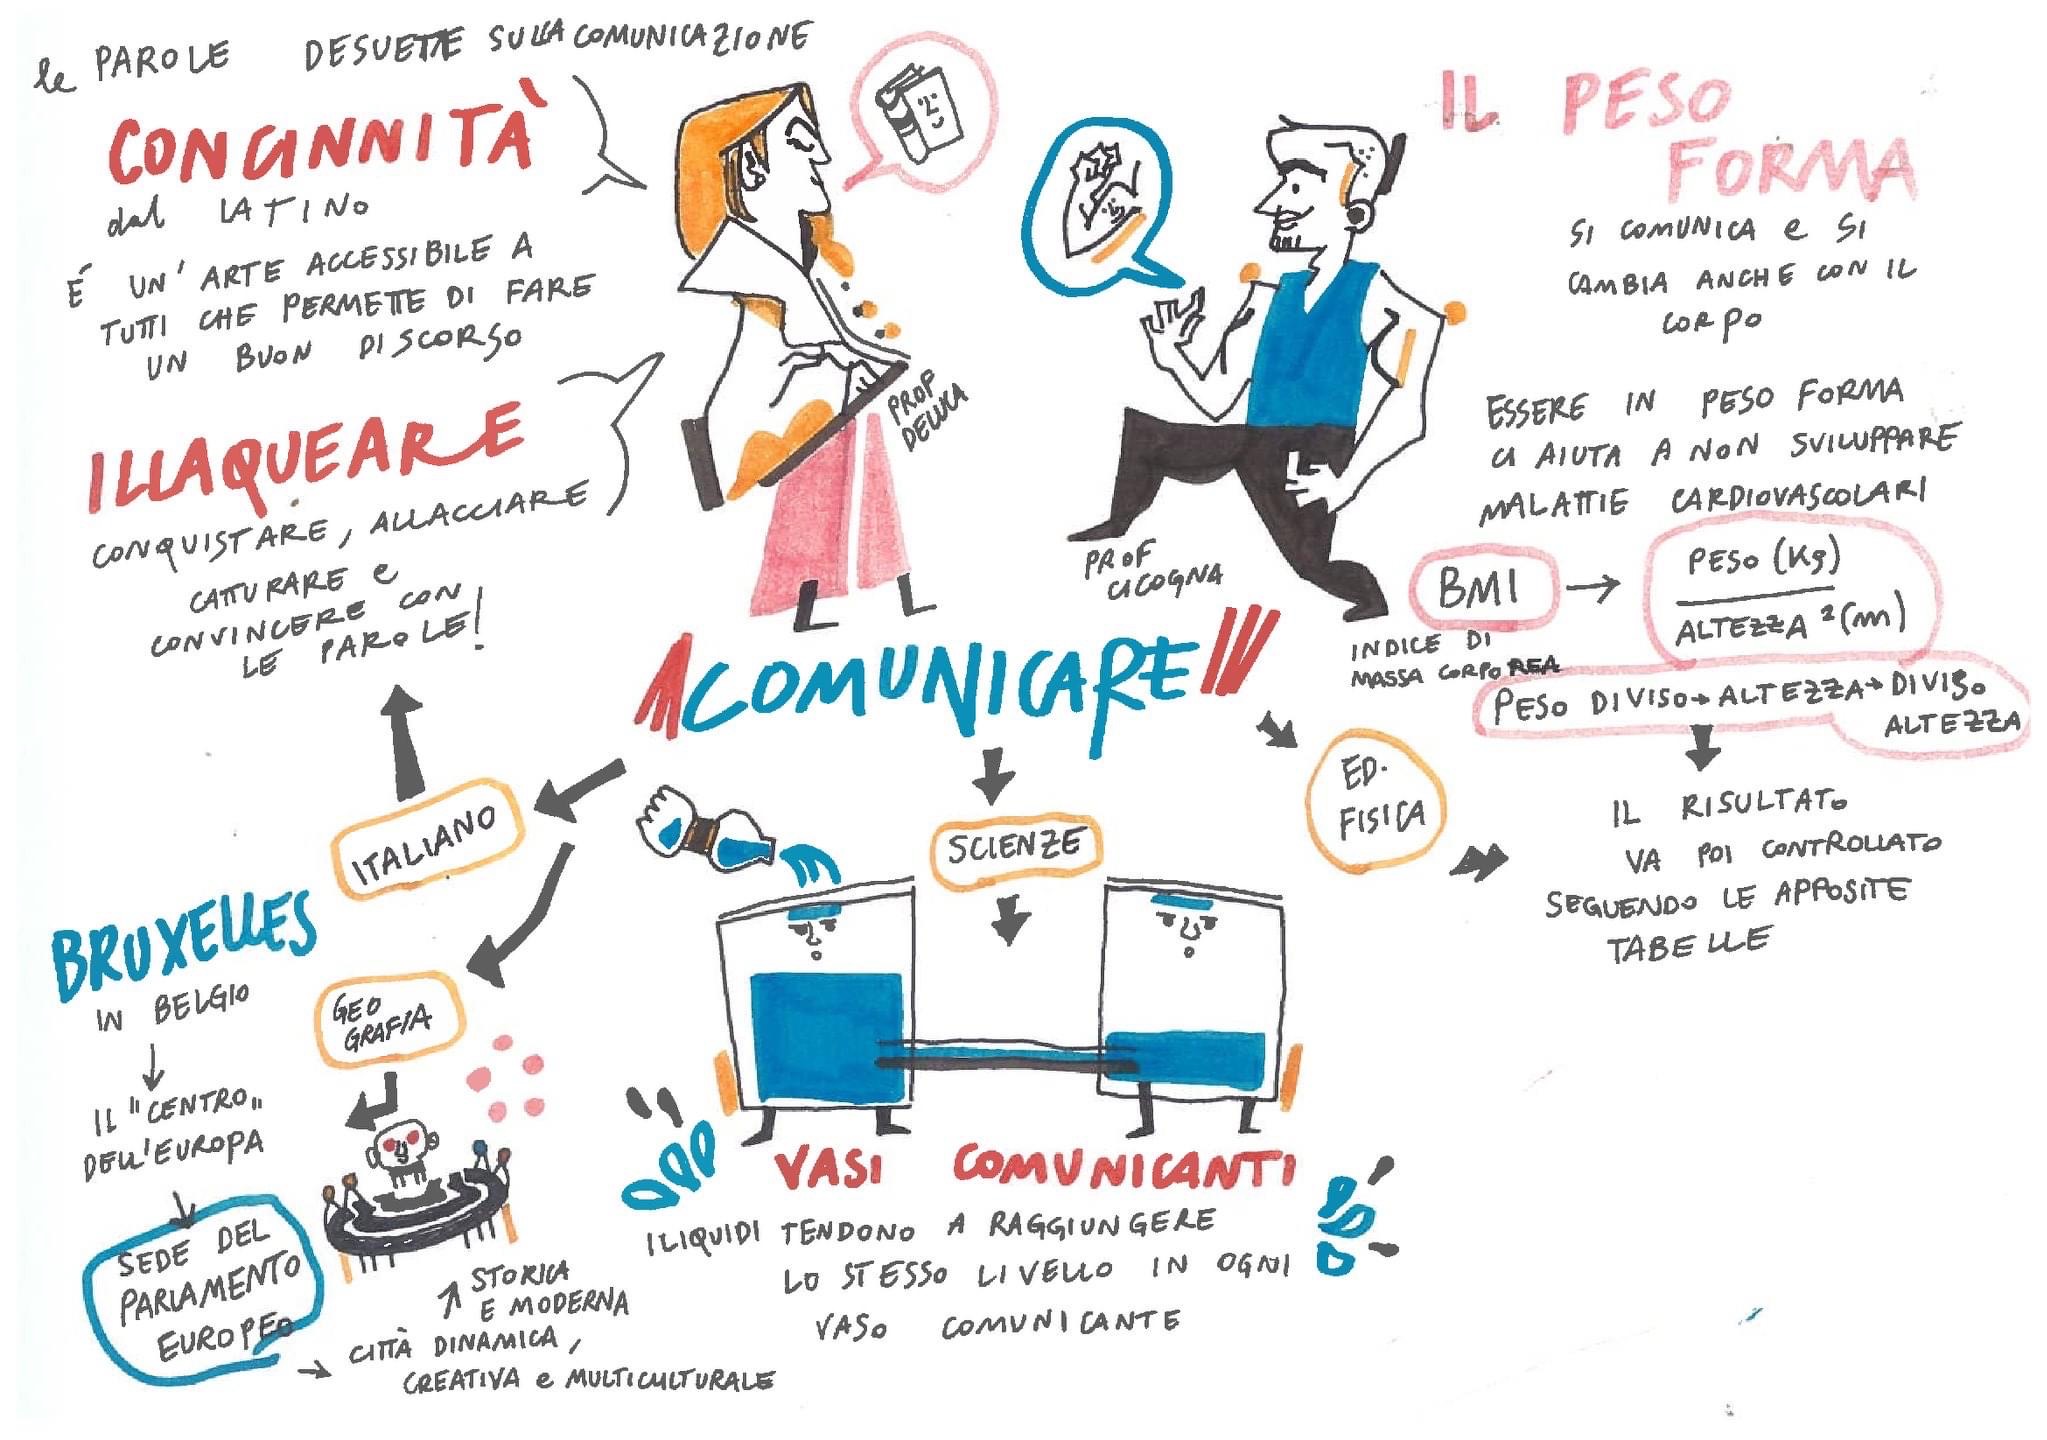 le PAROLE DESUETTE SULLA COMUNICAZIONE
CONCINNITÀ
dal LATINO
É UN' ARTE ACCESSIBILE A
TUTTI CHE PERMETTE DI FARE
UN BUON DISCORSO
ILLAQUEARE
CONQUISTARE, ALLACCIARE
CATTURARE e
CONVINCERE CON
LE PAROLE!
PROF
DELUCA
PROF
CICOGNA
IL PESO
FORMA
SI COMUNICA e SI
CAMBIA ANCHE CON IL
CORPO
ESSERE IN PESO FORMA
CI AIUTA A NON SVILUPPARE
MALATTIE CARDIOVASCOLARI
BMI
PESO (Kg)
ALTEZZA ² (m)
INDICE DI
MASSA CORPOREA
PESO DIVISO → ALTEZZA → DIVISO
ALTEZZA
IL RISULTATO
VA POI CONTROLLATO
SEGUENDO LE APPOSITE
TABELLE
COMUNICARE
ED.
FISICA
SCIENZE
ITALIANO
GEO
GRAFIA
BRUXELLES
IN BELGIO
IL "CENTRO"
DELL'EUROPA
SEDE DEL
PARLAMENTO
EUROPEO
STORICA
E MODERNA
CITTÀ DINAMICA,
CREATIVA e MULTICULTURALE
VASI COMUNICANTI
I LIQUIDI TENDONO A RAGGIUNGERE
LO STESSO LIVELLO IN OGNI
VASO COMUNICANTE